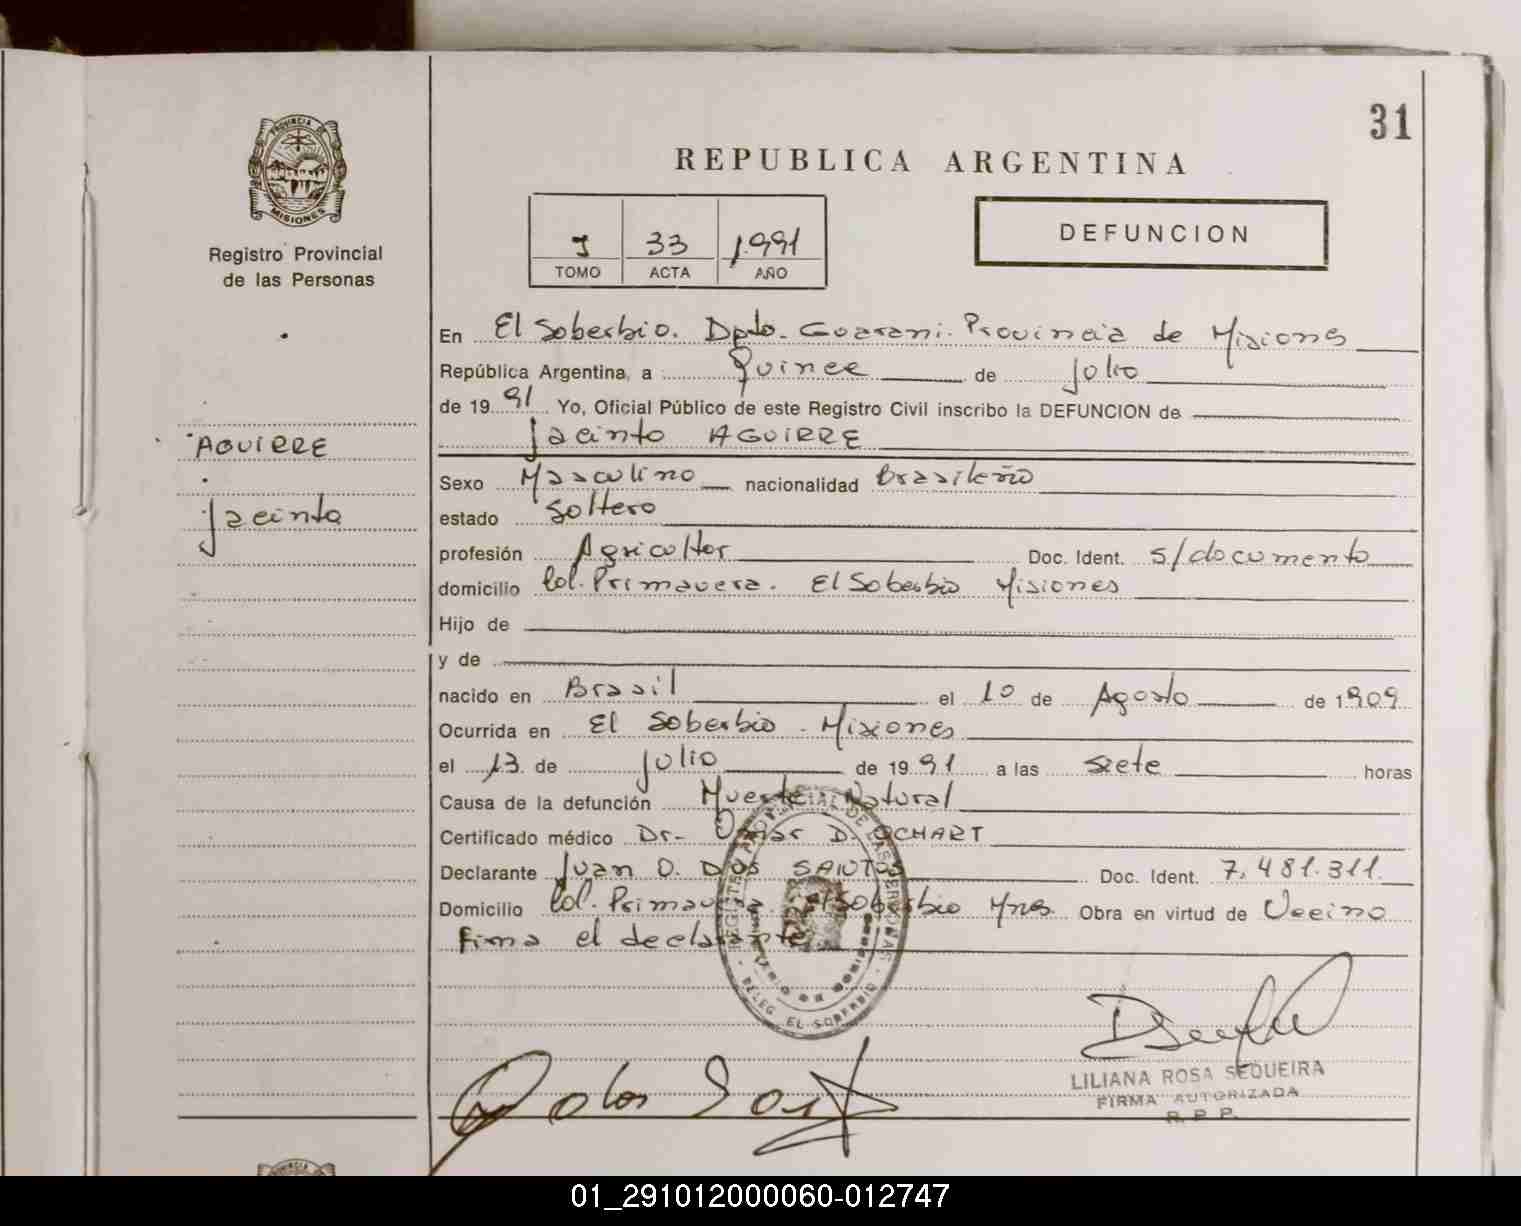 31
PROVINCIA DE
MISIONES
Registro Provincial
de las Personas
REPUBLICA ARGENTINA
I 33 1.991
TOMO ACTA AÑO
DEFUNCION
En El Soberbio. Dpto. Guarani. Provincia de Misiones
República Argentina, a Quince de Julio
de 19 91 Yo, Oficial Público de este Registro Civil inscribo la DEFUNCION de
Jacinto AGUIRRE
AGUIRRE
Jacinto
Sexo Masculino nacionalidad Brasileño
estado Soltero
profesión Agricultor Doc. Ident. s/documento
domicilio Col. Primavera. El Soberbio Misiones
Hijo de
y de
nacido en Brasil el 10 de Agosto de 1909
Ocurrida en El Soberbio - Misiones
el 13 de Julio de 19 91 a las siete horas
Causa de la defunción Muerte Natural
Certificado médico Dr- Omar D. OCHART
Declarante Juan O. DOS SANTOS Doc. Ident. 7.481.311.
Domicilio Col. Primavera El Soberbio Mnes. Obra en virtud de Vecino
Firma el declarante
REGISTRO PROVINCIAL DE LAS PERSONAS
MINISTERIO DE GOBIERNO
DELEG. EL SOBERBIO
LILIANA ROSA SEQUEIRA
FIRMA AUTORIZADA
R. P. P.
01_291012000060-012747